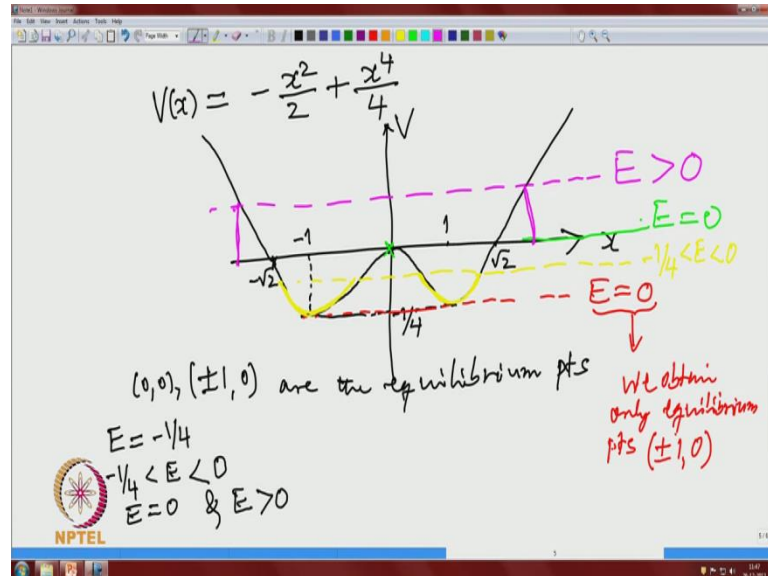 Note1 - Windows Journal
File Edit View Insert Actions Tools Help
Page Width
V(x) = - x²/2 + x⁴/4
V
E > 0
E = 0
-1
1
x
-√2
√2
-1/4 < E < 0
E = 0
-1/4
(0,0), (±1,0) are the equilibrium pts
We obtain
only equilibrium
pts (±1,0)
E = -1/4
-1/4 < E < 0
E = 0 & E > 0
NPTEL
5
11:47